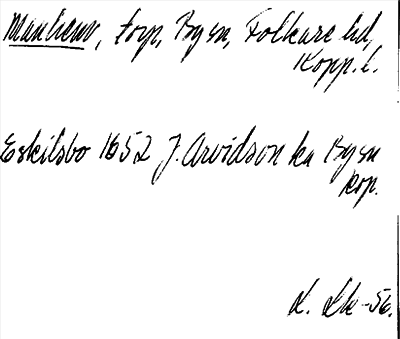 Manheim, torp, By sn, Folkare hd,
Kopp. l.
Eskilsbo 1652 J. Arvidson ka By sn
kop.
L. Lk -56.